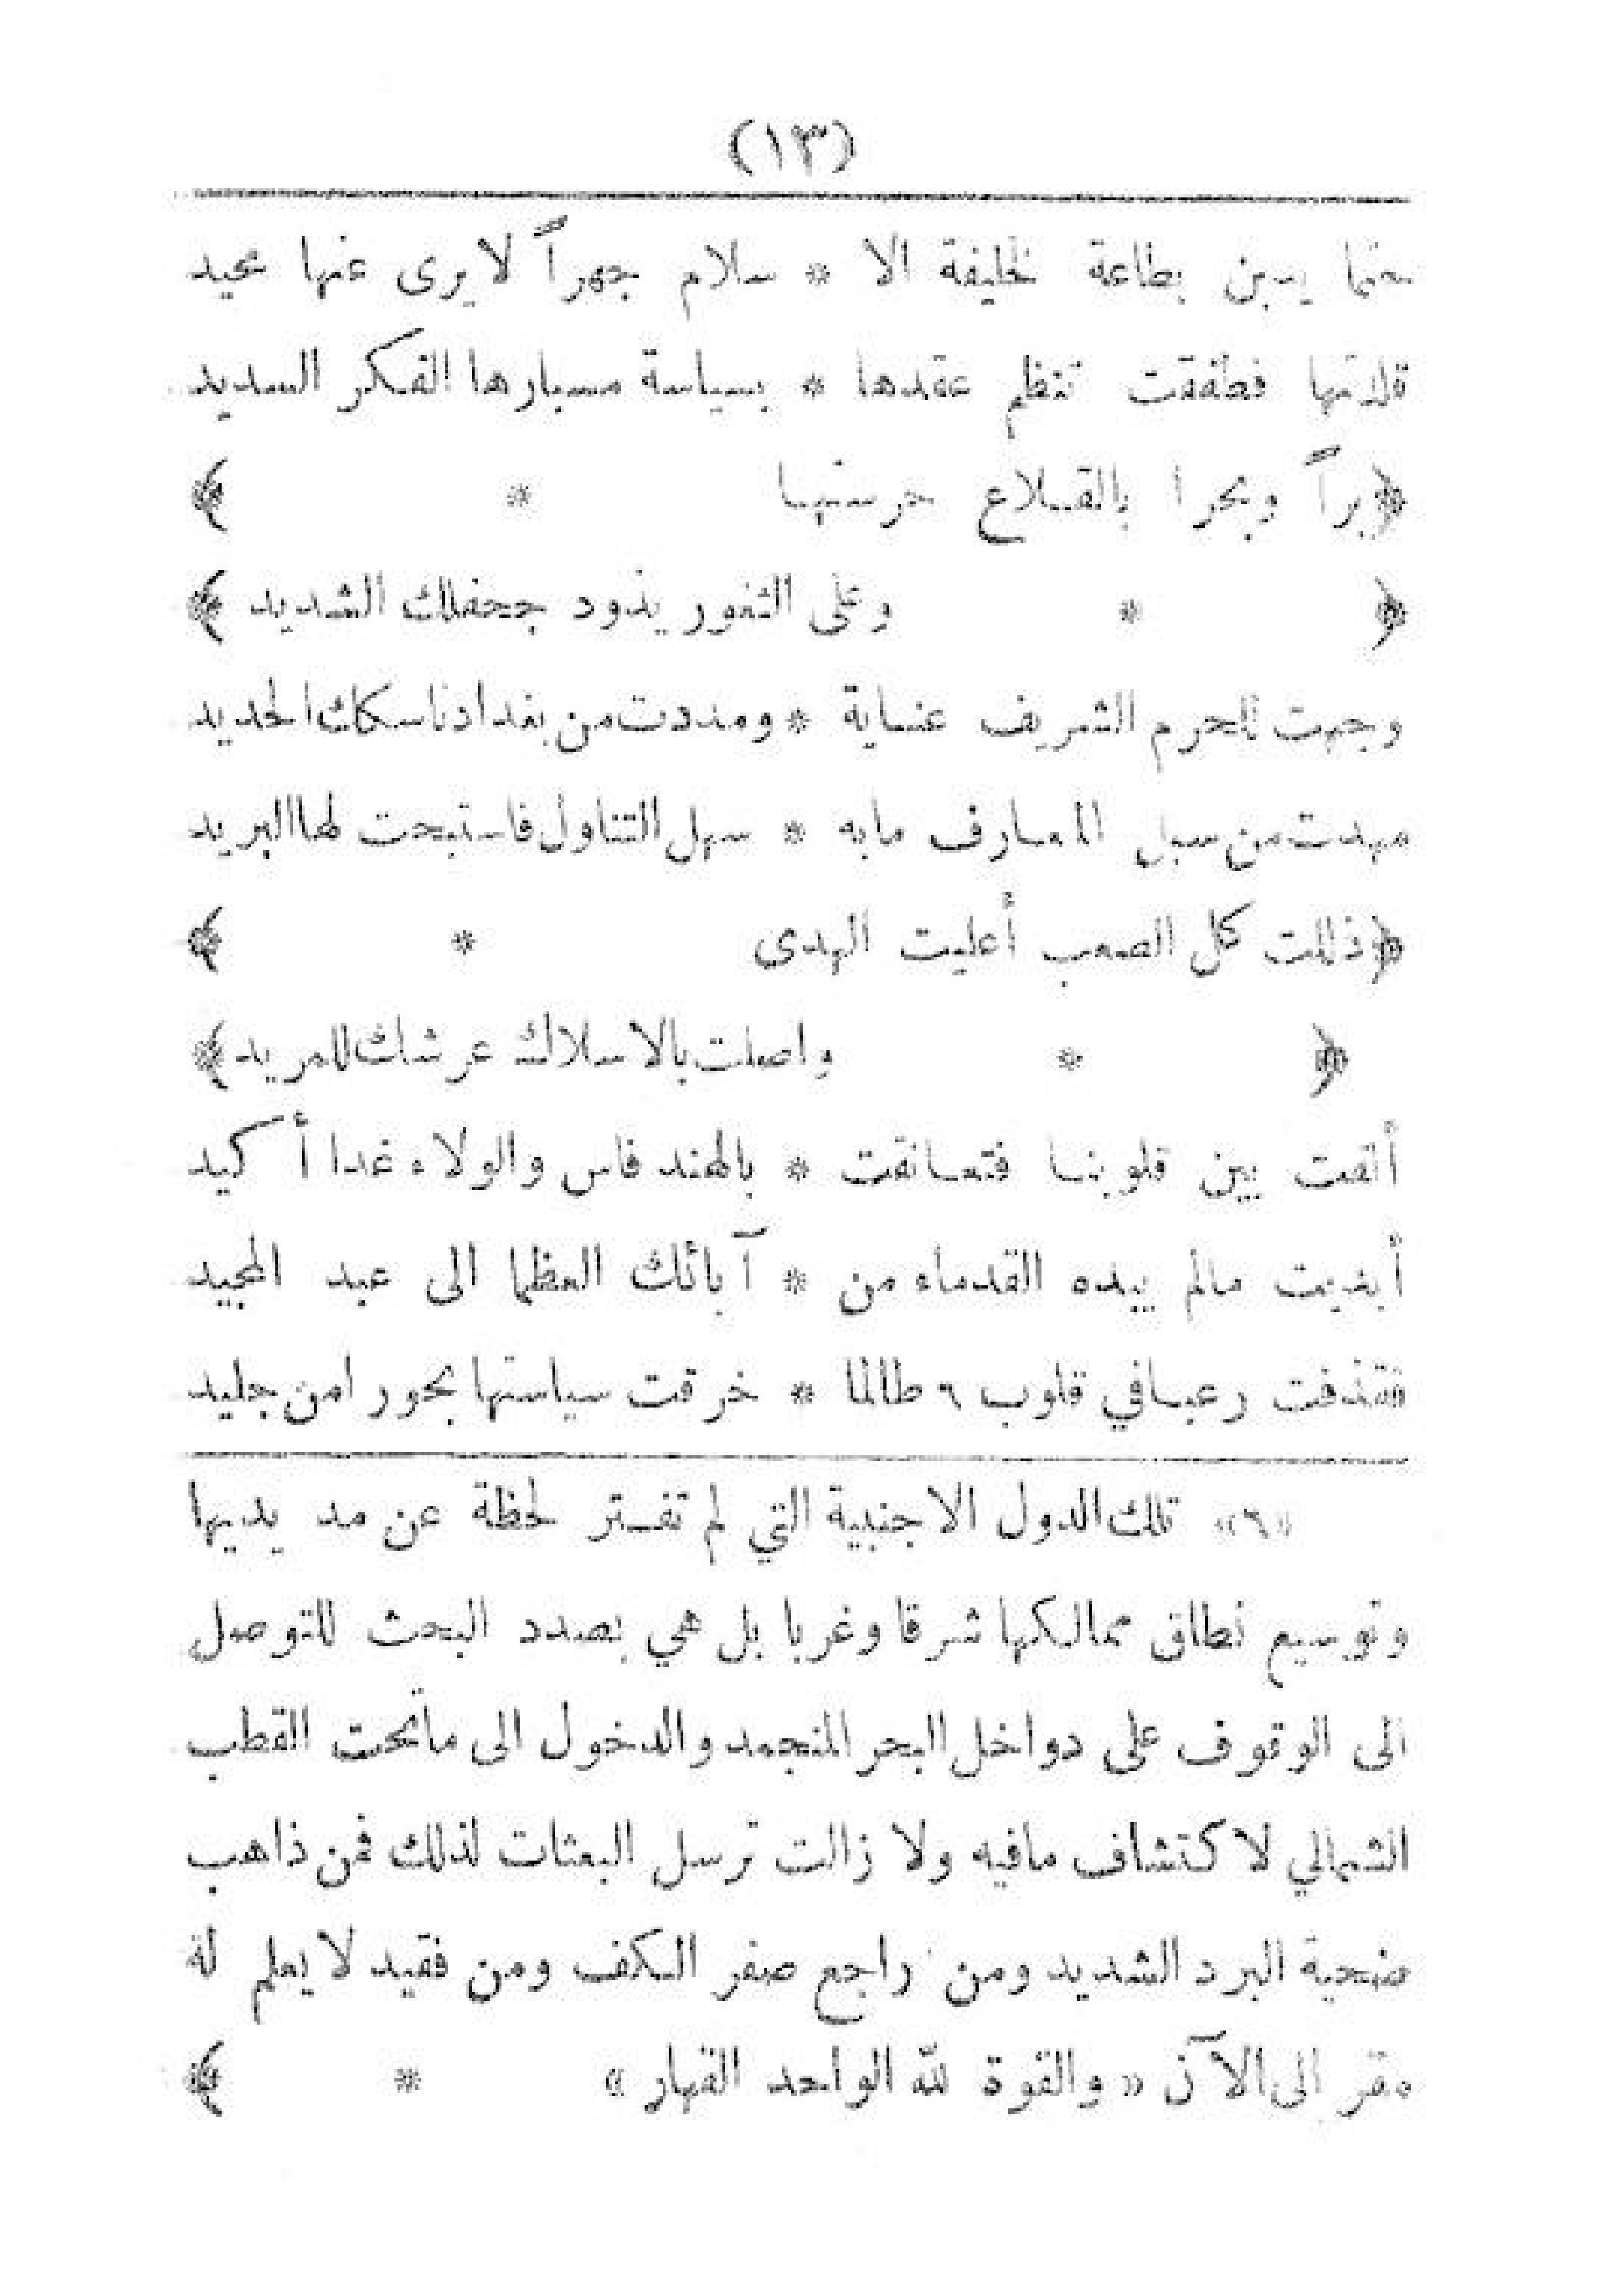 (١٣)
حتما يدين بطاعة خليفة الا * سلام جهراً لا يرى عنها محيد
قلدتها فطفقت تنظم عقدها * بسياسة مسبارها الفكر السديد
﴿براً وبحرا بالقلاع حرستها * ﴾
﴿ * وعلى الثغور يذود جحفلك الشديد ﴾
وجهت للحرم الشريف عناية * ومددت من بغدادنا سكك الحديد
مهدت من سبل المعارف مابه * سهل التناول فاستبحت لها البريد
﴿ذللت كل الصعب أعليت الهدى * ﴾
﴿ * واصلت بالاسلاك عرشك للمريد﴾
ألفت بين قلوبنا فتعانقت * بالهند فاس والولاء غدا أكيد
أبديت مالم يبده القدماء من * آبائك العظما الى عبد المجيد
فقذفت رعبا في قلوب ٦ طالما * خرقت سياستها بحورا من جليد
«٦» تلك الدول الاجنبية التي لم تفتر لحظة عن مد يديها
وتوسيع نطاق ممالكها شرقا وغربا بل هي بصدد البحث للتوصل
الى الوقوف على دواخل البحر المنجمد والدخول الى ماتحت القطب
الشمالي لاكتشاف مافيه ولا زالت ترسل البعثات لذلك فمن ذاهب
ضحية البرد الشديد ومن راجع صفر الكف ومن فقيد لا يعلم له
مقر الى الآن «والقوة لله الواحد القهار» * ﴾